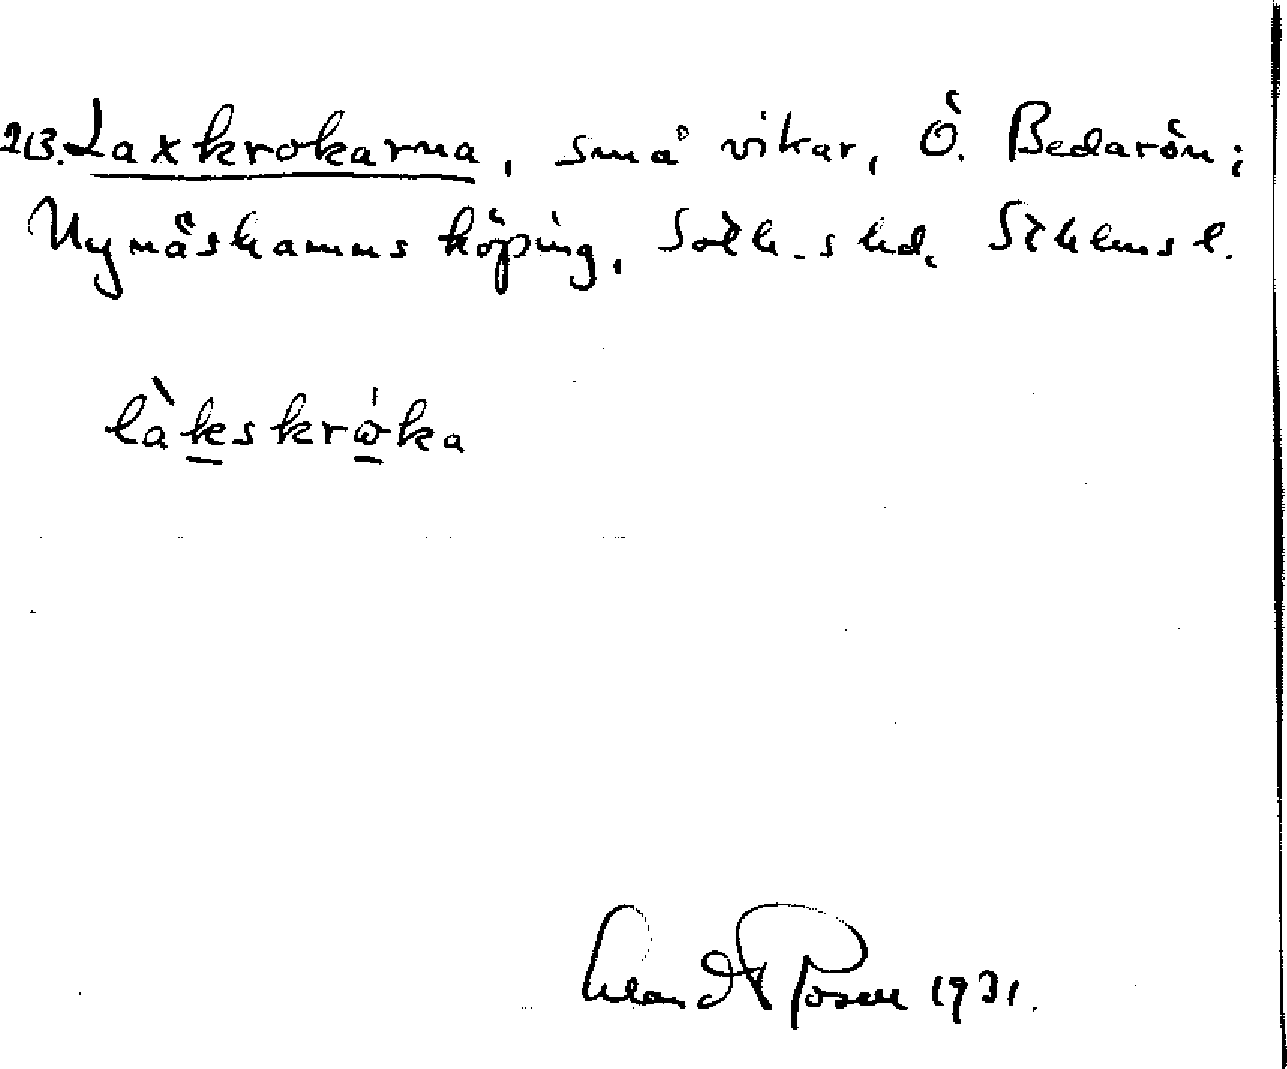 213. Laxkrokarna, små vikar, Ö. Bedarön;
Nynäshamns köping, Soth-s hd, Sthlms l.
làkskròka
1931.